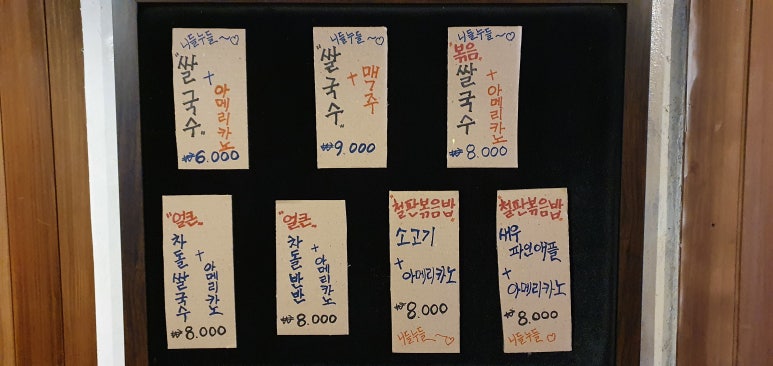 니들누들~♡
"쌀국수"
+
아메리카노
₩6.000
니들누들~♡
"쌀국수"
+
맥주
₩9.000
니들누들~♡
"볶음"
쌀국수
+
아메리카노
₩8.000
"얼큰"
차돌쌀국수
+
아메리카노
₩8.000
"얼큰"
차돌반반
+
아메리카노
₩8.000
"철판볶음밥"
소고기
+
아메리카노
₩8.000
니들누들~♡
"철판볶음밥"
새우
파인애플
+
아메리카노
₩8.000
니들누들♡